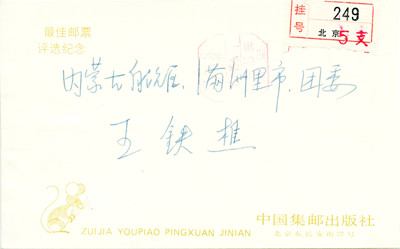 最佳邮票
评选纪念
挂号
249
北京
5支
内蒙古自治区.满洲里市.团委
王铁樵
ZUIJIA YOUPIAO PINGXUAN JINIAN
中国集邮出版社